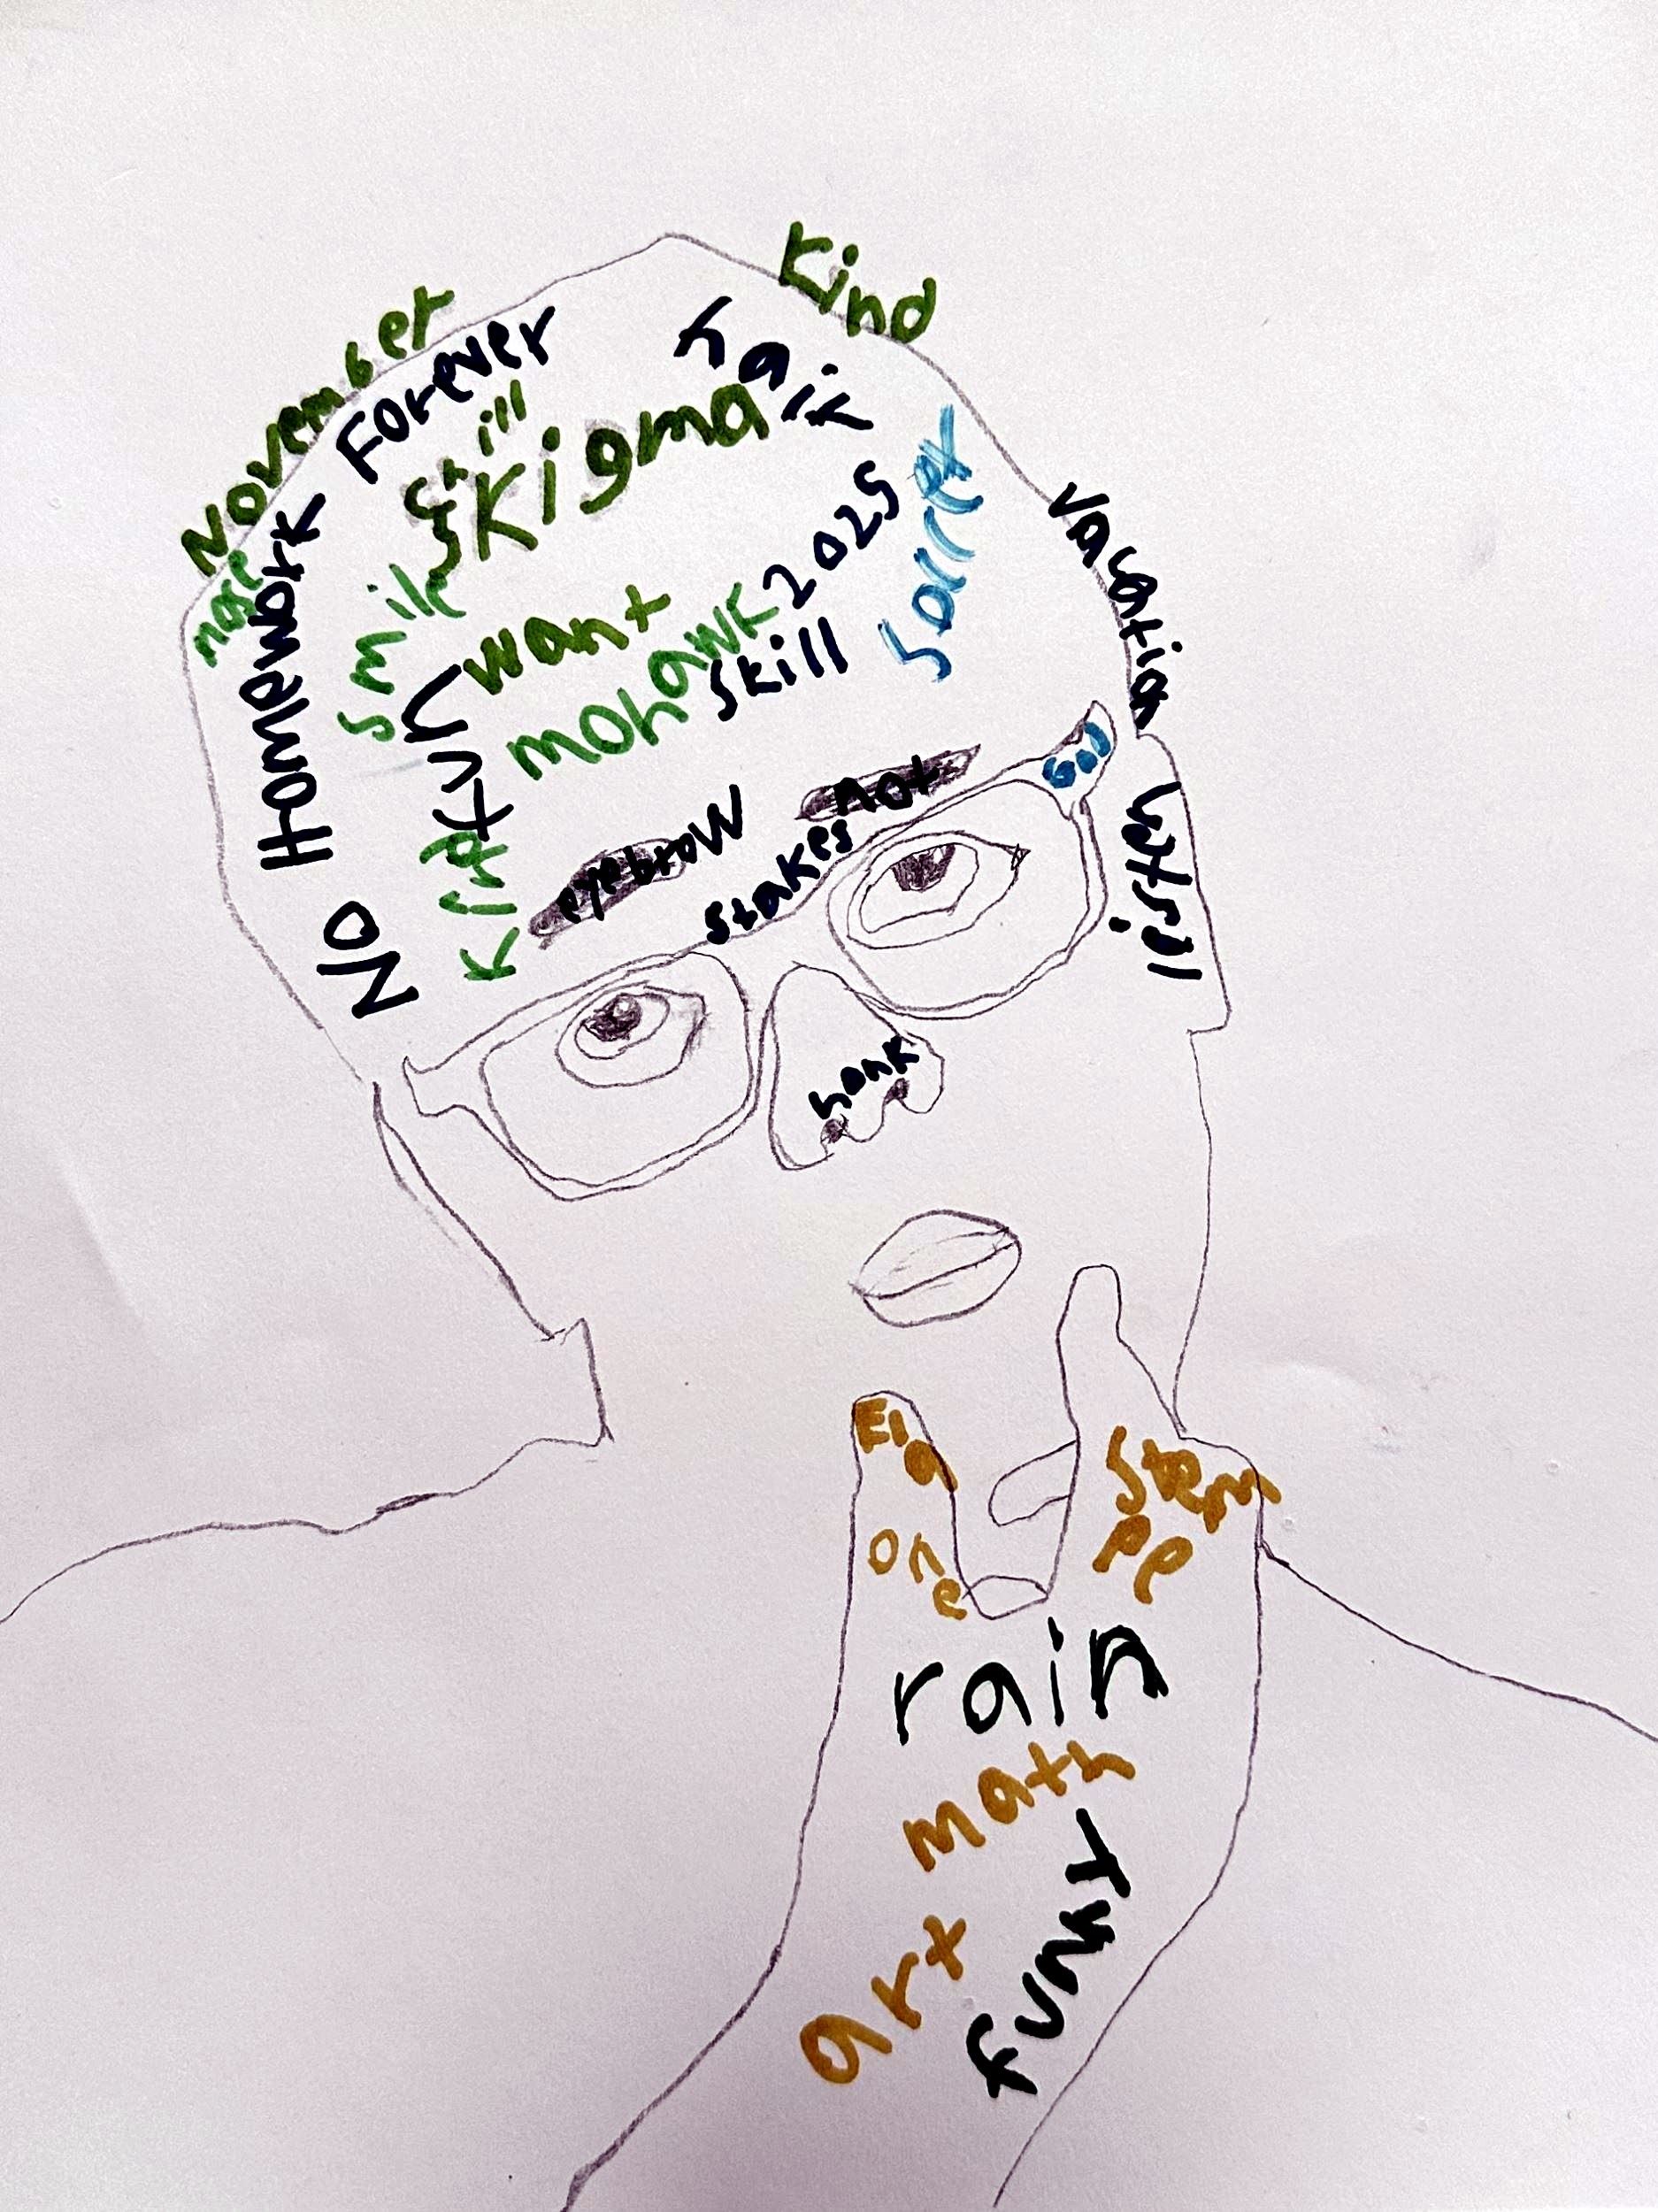 Kind
November
Forever
hair
Chill
Kigma
nose
No Homework
smile
want
2025
Soccer
Vacation
mohawk
skill
God
eyebrow
not
stakes
honk
ELA
One
Stem
PP
rain
math
art
funny